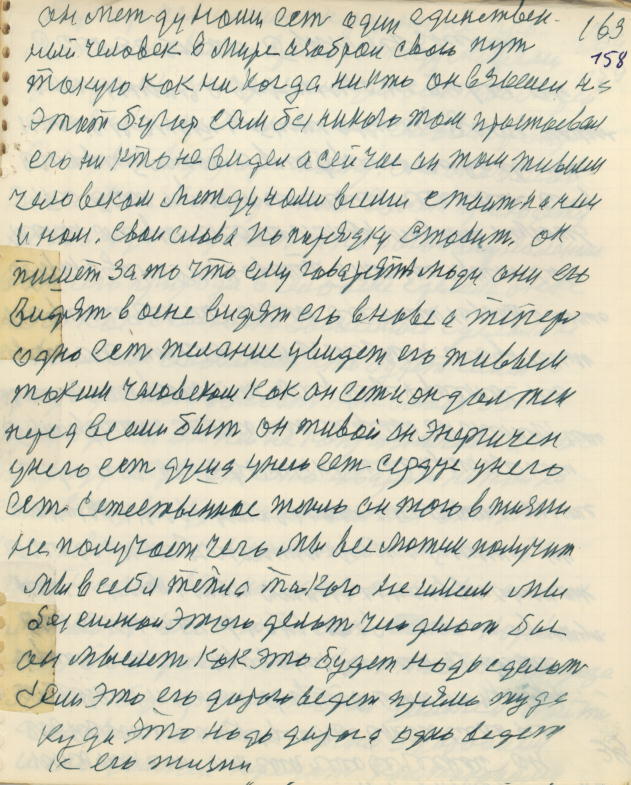 163
158
он между нами ест один единствен-
ный человек в мире избрал свой пут
такую как ни когда никто он взашел на
этот бугор сам без никого там простаевал
его ни кто не видел а сейчас он там живым
человеком между нами всеми стоит на ним
и ном. свои слова по порядку ставит. он
пишет за то что ему говарят люди они его
видят в сне видят его вновь а тепер
одно ест желание увидет его живым
таким человеком как он ест и он должен
перед всеми быт он живой он энергичен
у него ест душа у него ест сердце у него
ест естественное тепло он того в жизни
не получает чего мы все можим получит
мы в себя тепла такого не имеим мы
безсилнаи этого делат чего делает бы
он мыслет как это будет надо сделат
если это его дорога ведет прямо туда
куда это надо дорога одна ведет
к его жизни